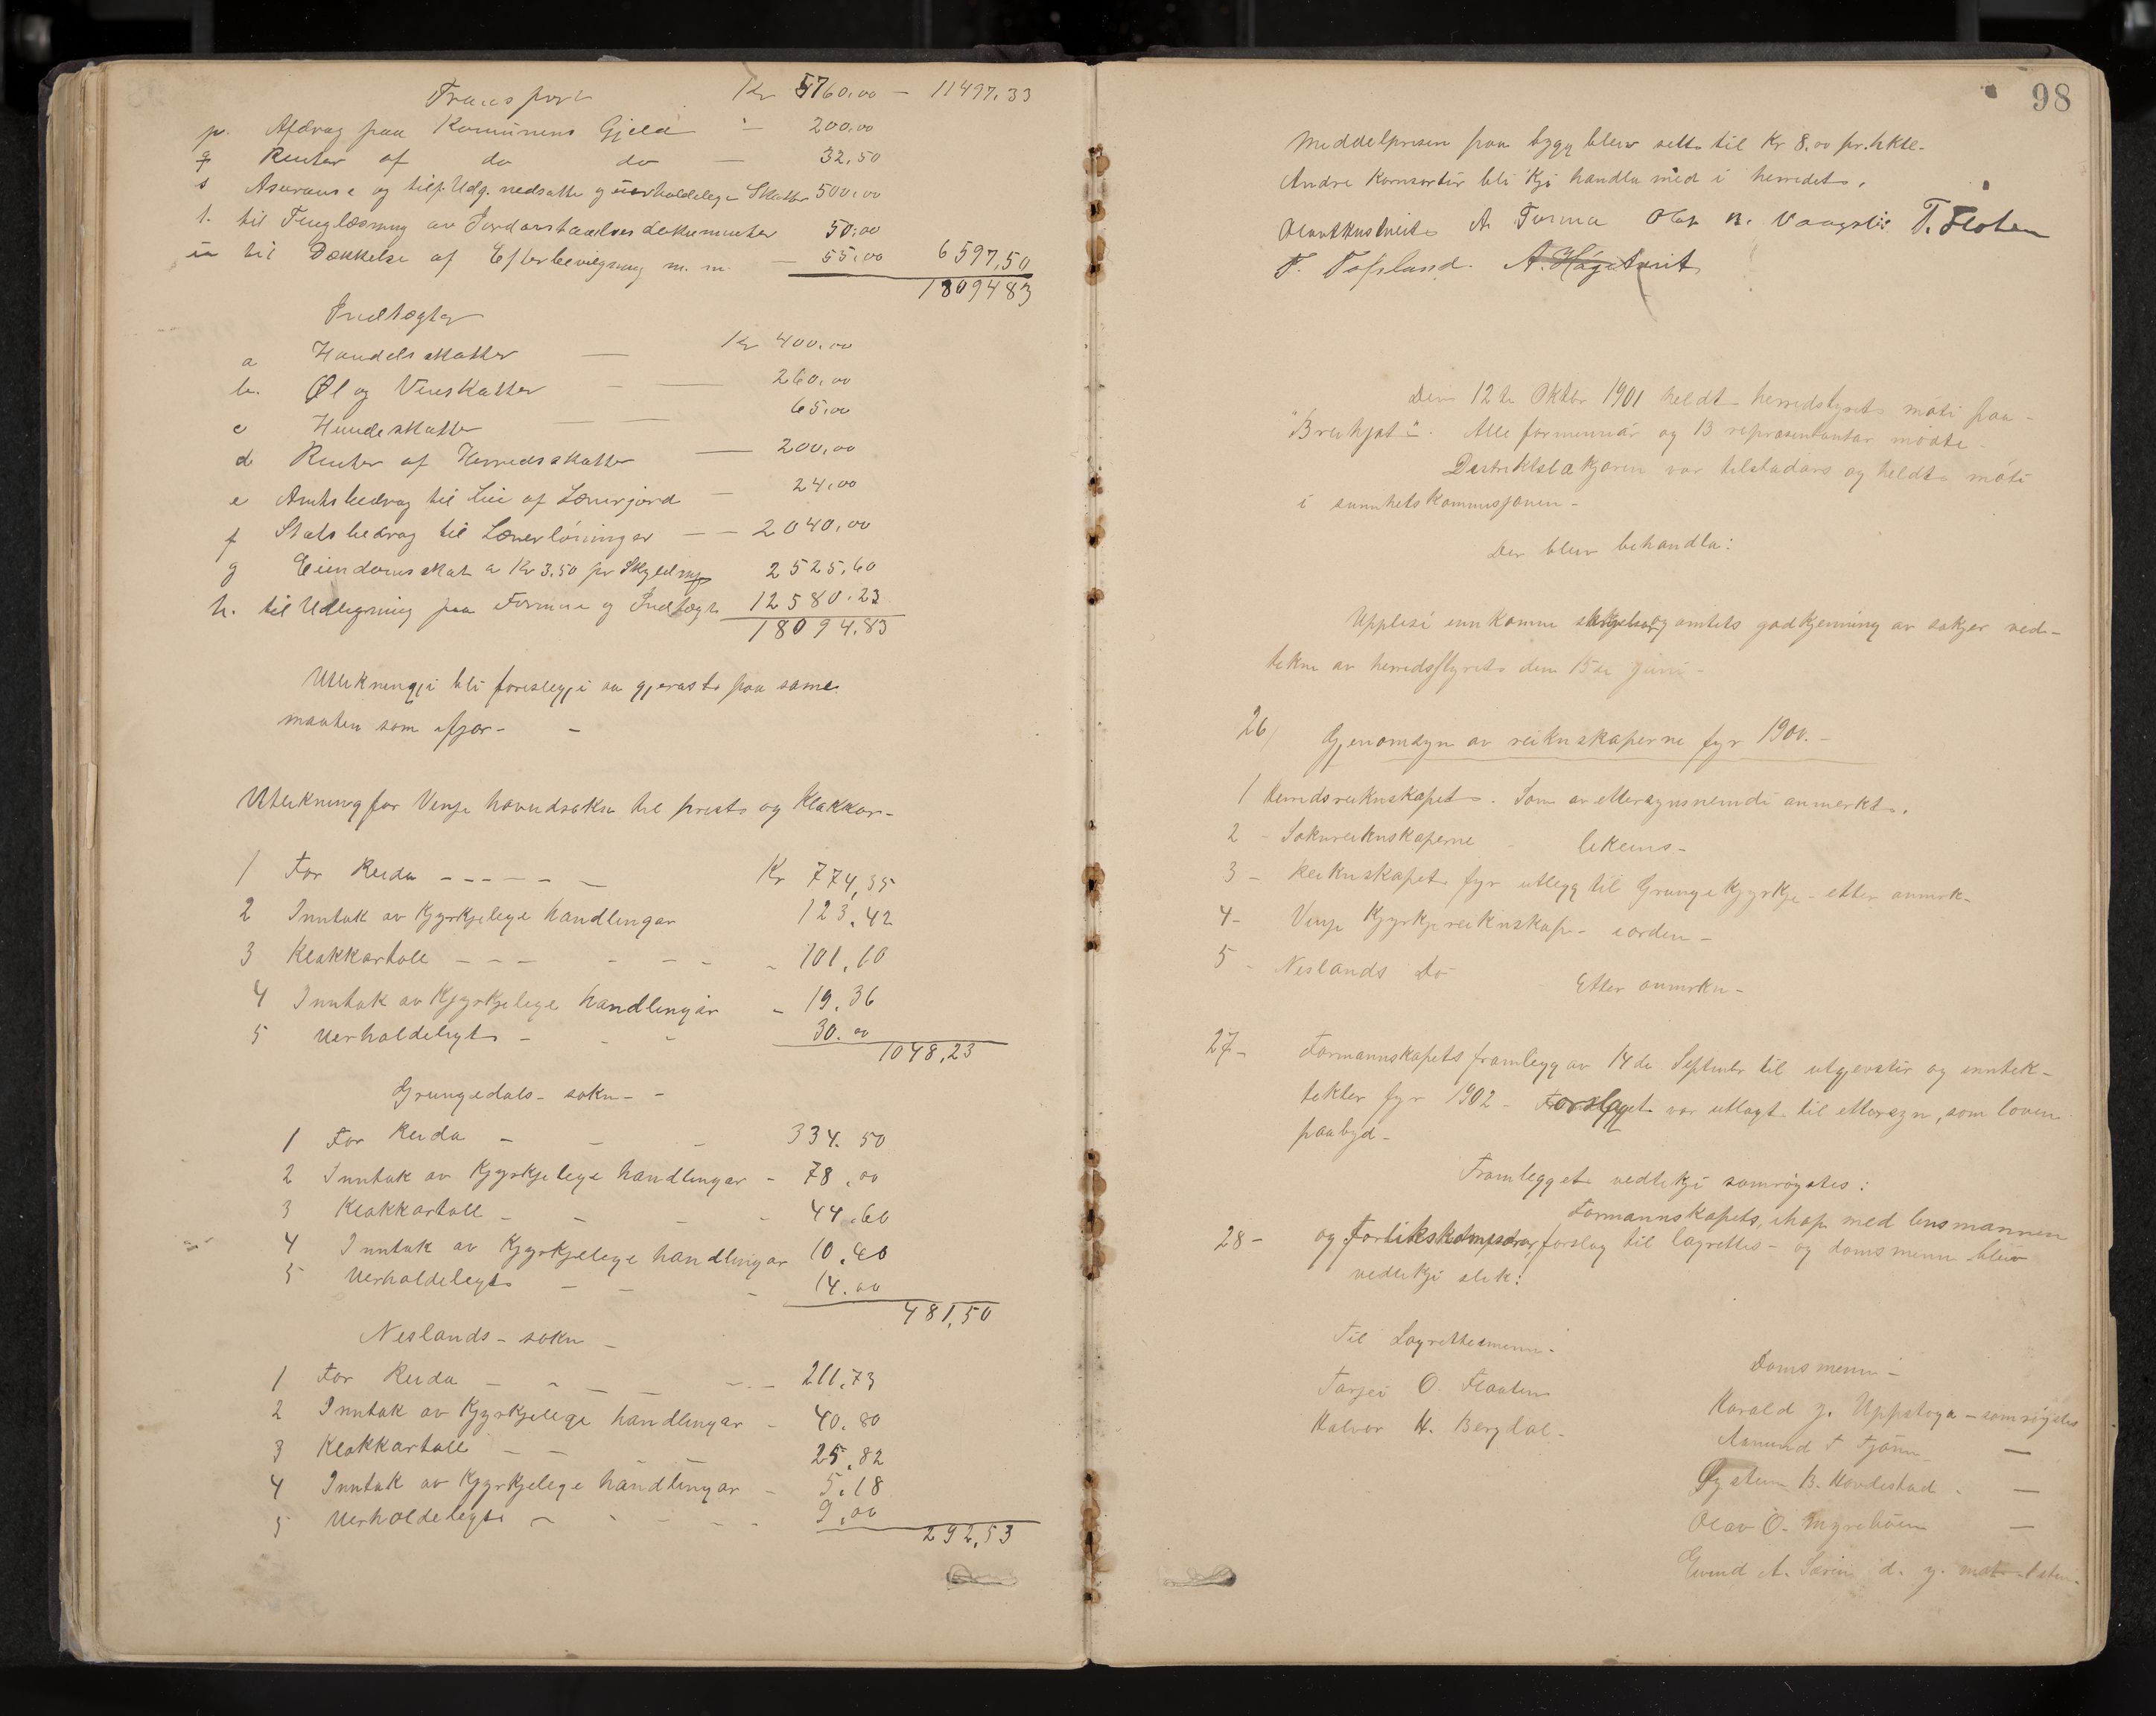 Transport Kr 5760.00 – 11497.33
p. Afdrag paa Kommunens Gjeld " – 200.00
q Renter af do do – 32.50
s Asuranse og tilf. Udg. nedsatte og uerholdelige Skatter 500.00
t. til Tinglæsning av Jordavstaaelsesdokumenter 50.00
u til Dækkelse af Efterbevilgning m. m. – 55.00 6597,50
1809483
Indtægter
a Handelsskatter — Kr 400.00
b. Øl og Vinskatter – — 260.00
c Hundeskatter — — 65.00
d Renter af Herredsskatter — 200.00
e Amtsbedrag til Leie af Lærerjord – 24.00
f Statsbedrag til Lærerlöninger – – 2040,00
g Eiendomsskat a Kr 3.50 pr Skyldmrk 2525,60
h. til Udligning paa Formue og Indtægt 12580.23
18094.83
Utlikningji bli foreslegji aa gjerast paa same
maaten som ifjor – –
Utlikning for Vinje hovudsokn til prest og Klokkar –
1 For Reida - - - - - – Kr 774,35
2 Inntak av Kyrkjelege handlingar 123,42
3 Klokkartoll – – – - – - - 101.10
4 Inntak av Kyrkjelege handlingar - 19.36
5 Uerholdelegt – - - 30.00
1048,23
Grungedals – sokn – –
1 For Reida – – – 334.50
2 Inntak av Kyrkjelege handlingar – 78.00
3 Klokkartoll – – – - 44.60
4 Inntak av Kyrkjelege handlingar 10.40
5 Uerholdelegt – – - 14.00
481,50
Neslands – sokn –
1 For Reida – - – – - - 211.73
2 Inntak av Kyrkjelege handlingar – 40.80
3 Klokkartoll – – 25.82
4 Inntak av Kyrkjelege handlingar – 5.18
5 Uerholdelegt – - – - - 9.00
292,53
98
Middelprisen paa bygg bleiv sett til Kr 8.00 pr. hktl.
Andre Kornsortir bli kji handla med i herredet.
A. Turma Olav N. Vaagsli T. Floten
T. Tofsland. A. Hägetveit
Den 12te Oktbr 1901 heldt herredstyret möti paa
"Breihjøt". Alle formennar og 13 representantar mödte
Distriktslækjaren var tilstadar og heldt möti
i sunnhetskommisjonen –
Der bleiv behandla:
Upplesi innkomne skrivelser og amtets godkjenning av sakjer ved-
tekne av herredsstyret den 15de Juni –
26/ Gjenomsyn av reikneskaperne fyr 1900. –
1 Herredsreikneskapet. Som av ettersynsnemdi anmerkt.
2 – Soknereikneskaperne – likeins –
3 – Reikneskapet fyr utlegg til Grunge Kyrkje – etter anmrk –
4 – Vinje Kyrkjereikneskap – iorden –
5 – Neslands Do Etter anmrkn –
27 – Formannskapets framlegg av 14de Septembr til utgjevstir og inntek-
tekter fyr 1902 – Forslaget var utlagt til ettersyn, som loven
paabyd –
Framlegget vedtekji samröystes:
Formannskapets, ihop med lensmannen
28 – og forlikskommisærar forslag til lagrettes – og domsmenn bleiv
vedtekji slik:
Til Lagrettesmenn:
Tarjei O. Flaaten
Halvor H. Bergdal –
Domsmenn –
Harald J. Uppstoga – samröystes
Aamund T Tjönn —
Øystein B. Hovdestad . —
Olav O. Myreböen —
Eivind A. d. y.